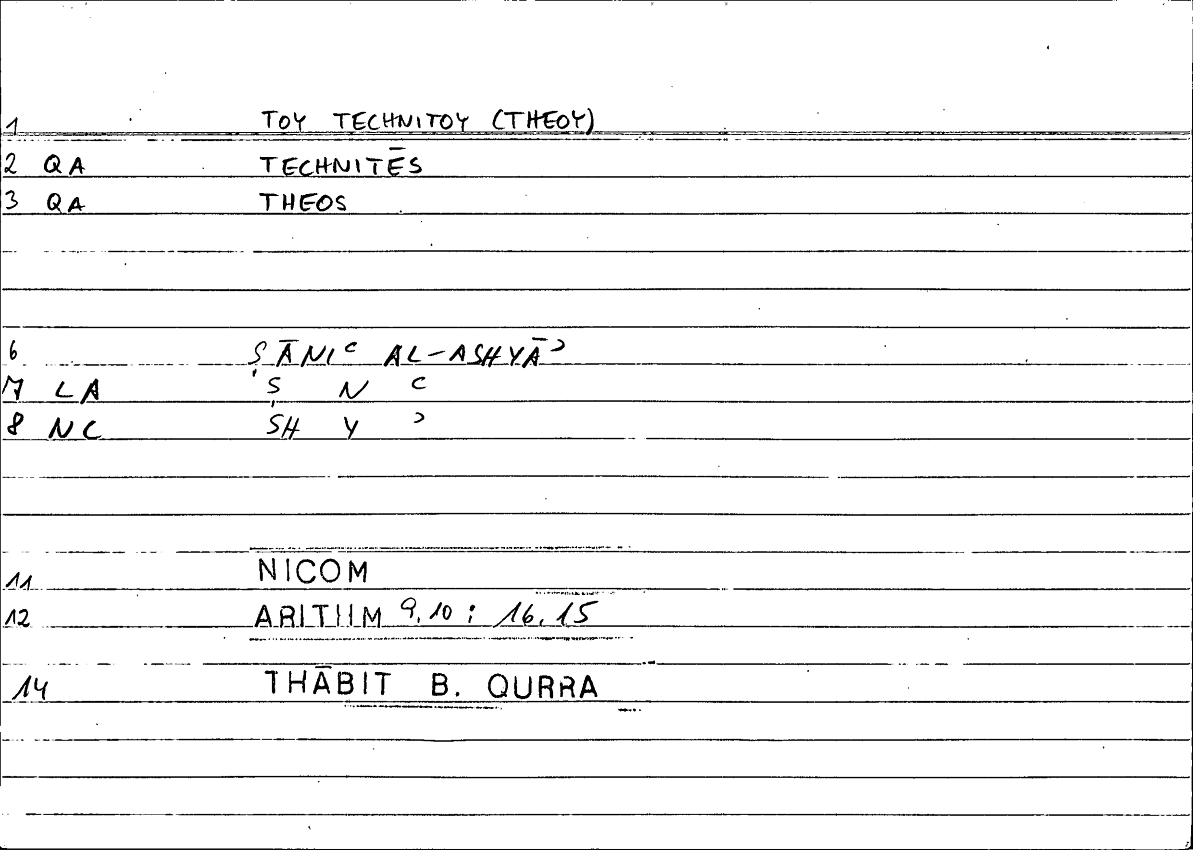 1 TOY TECHNITOY (THEOY)
2 QA TECHNITĒS
3 QA THEOS
6 ṢĀNIʿ AL-ASHYĀʾ
7 LA Ṣ N ʿ
8 NC SH Y ʾ
11 NICOM
12 ARITHM 9.10 : 16.15
14 THĀBIT B. QURRA